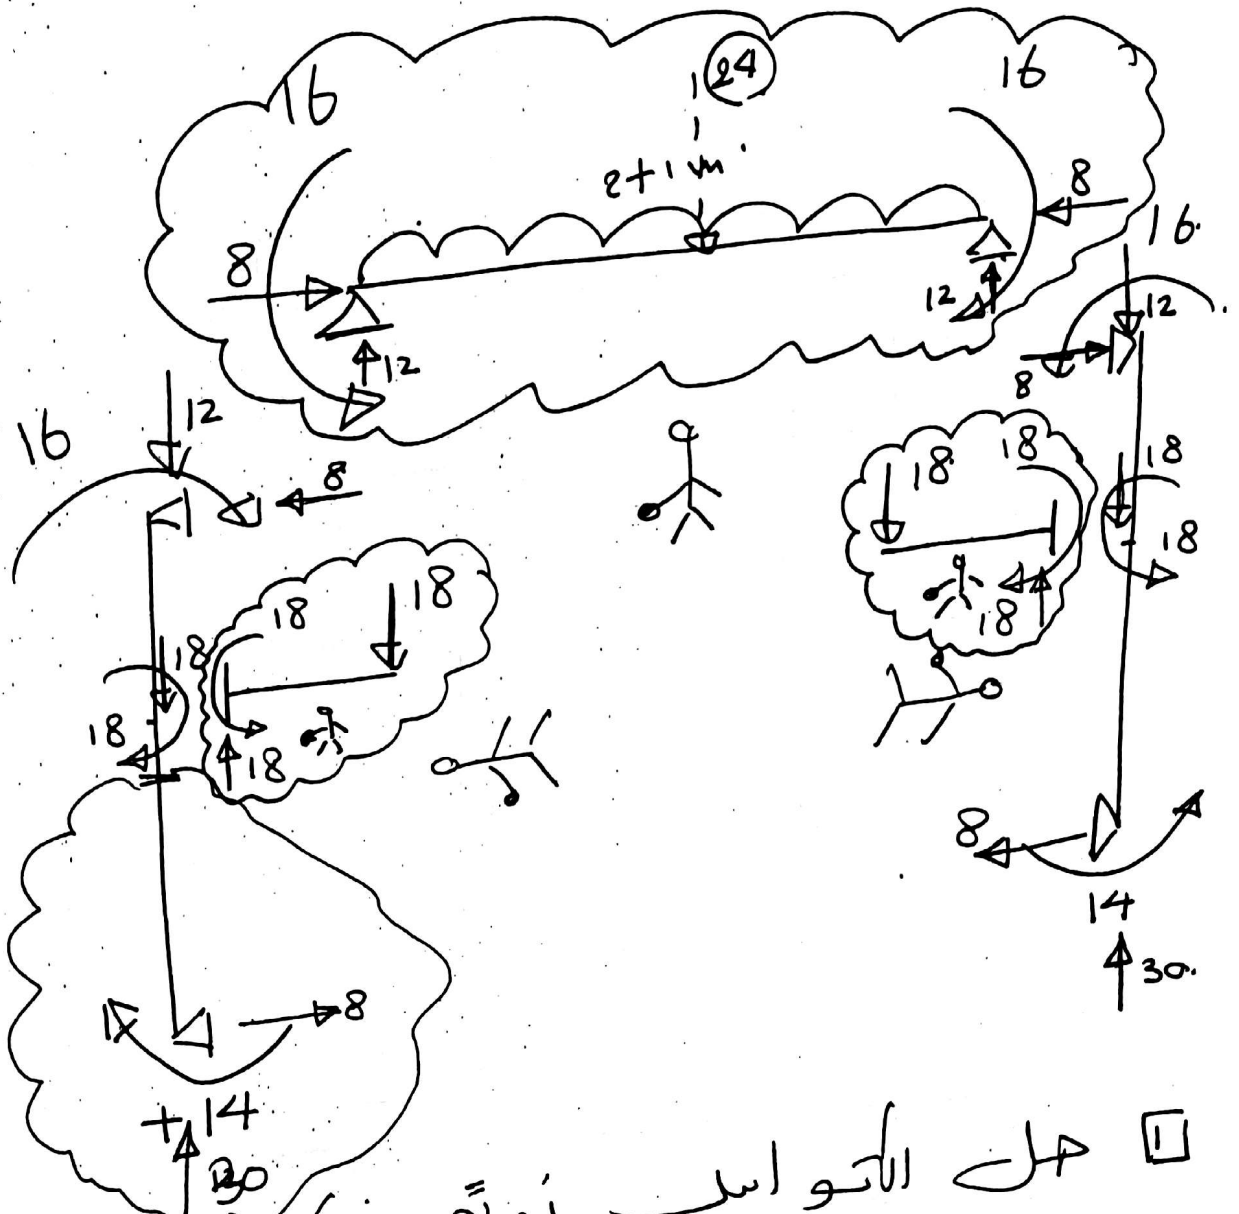 24
16
16
2t/m
8
8
16
12
12
12
8
16
12
8
18
18
18
18
18
18
18
18
18
18
8
14
30
8
+14
30
1 حل الكوابيل أولاً